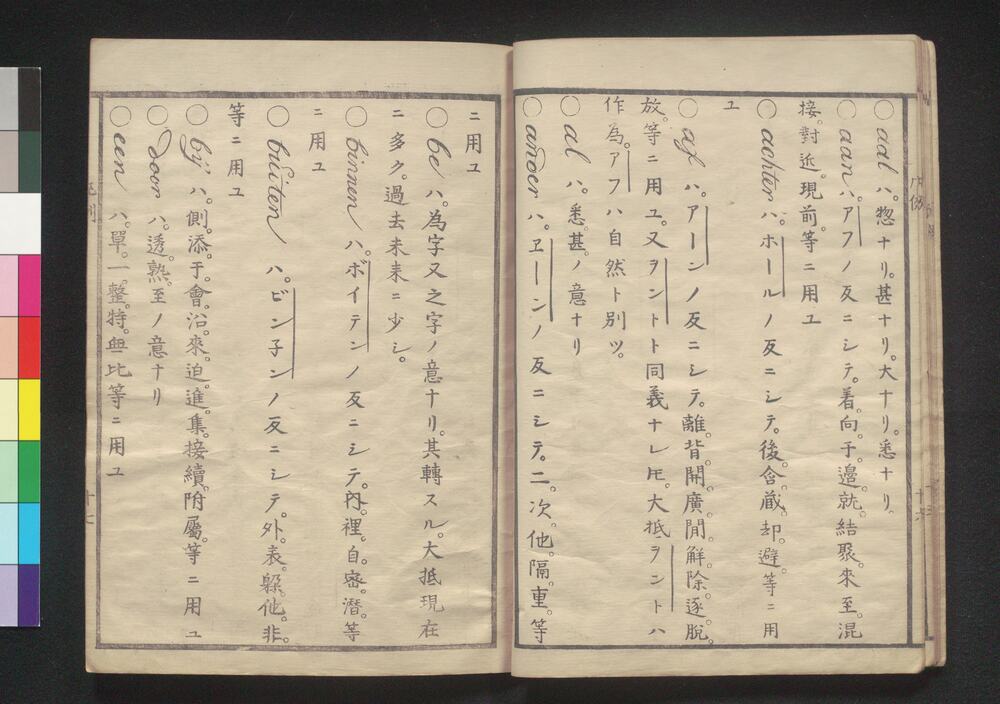 ○ aal ハ。惣ナリ。甚ナリ。大ナリ。悉ナリ。
○ aan ハ。アフノ反ニシテ。着。向。于。邊。就。結。聚。來。至。混
接。對。近。現。前。等ニ用ユ
○ achter ハ。ホールノ反ニシテ。後。含。蔵。却。避。等ニ用
ユ
○ af ハ。アーンノ反ニシテ。離。背。開。廣。間。解。除。逐。脱。
放。等ニ用ユ。又ヲントト同義ナレ𪜈。大抵ヲントハ
作為。アフハ自然ト別ツ。
○ al ハ。悉。甚。ノ意ナリ
○ ander ハ。ヱーンノ反ニシテ。二。次。他。隔。重。等
ニ用ユ
○ be ハ。為字又之字ノ意ナリ。其轉スル。大抵現在
ニ多ク。過去未来ニ少シ。
○ binnen ハ。ボイテンノ反ニシテ。内。裡。自。密。潜。等
ニ用ユ
○ buiten ハ。ビン子ンノ反ニシテ。外。表。躱。他。非。
等ニ用ユ
○ bij ハ。側。添。于。會。沿。來。迫。進。集。接。續。附。屬。等ニ用ユ
○ door ハ。透。熟。至ノ意ナリ
○ een ハ。單。一。整。特。無比等ニ用ユ